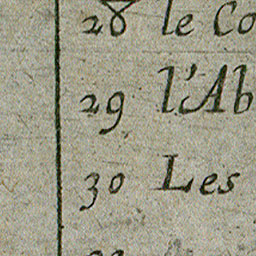 28 le Co
29 l'Ab
30 Les